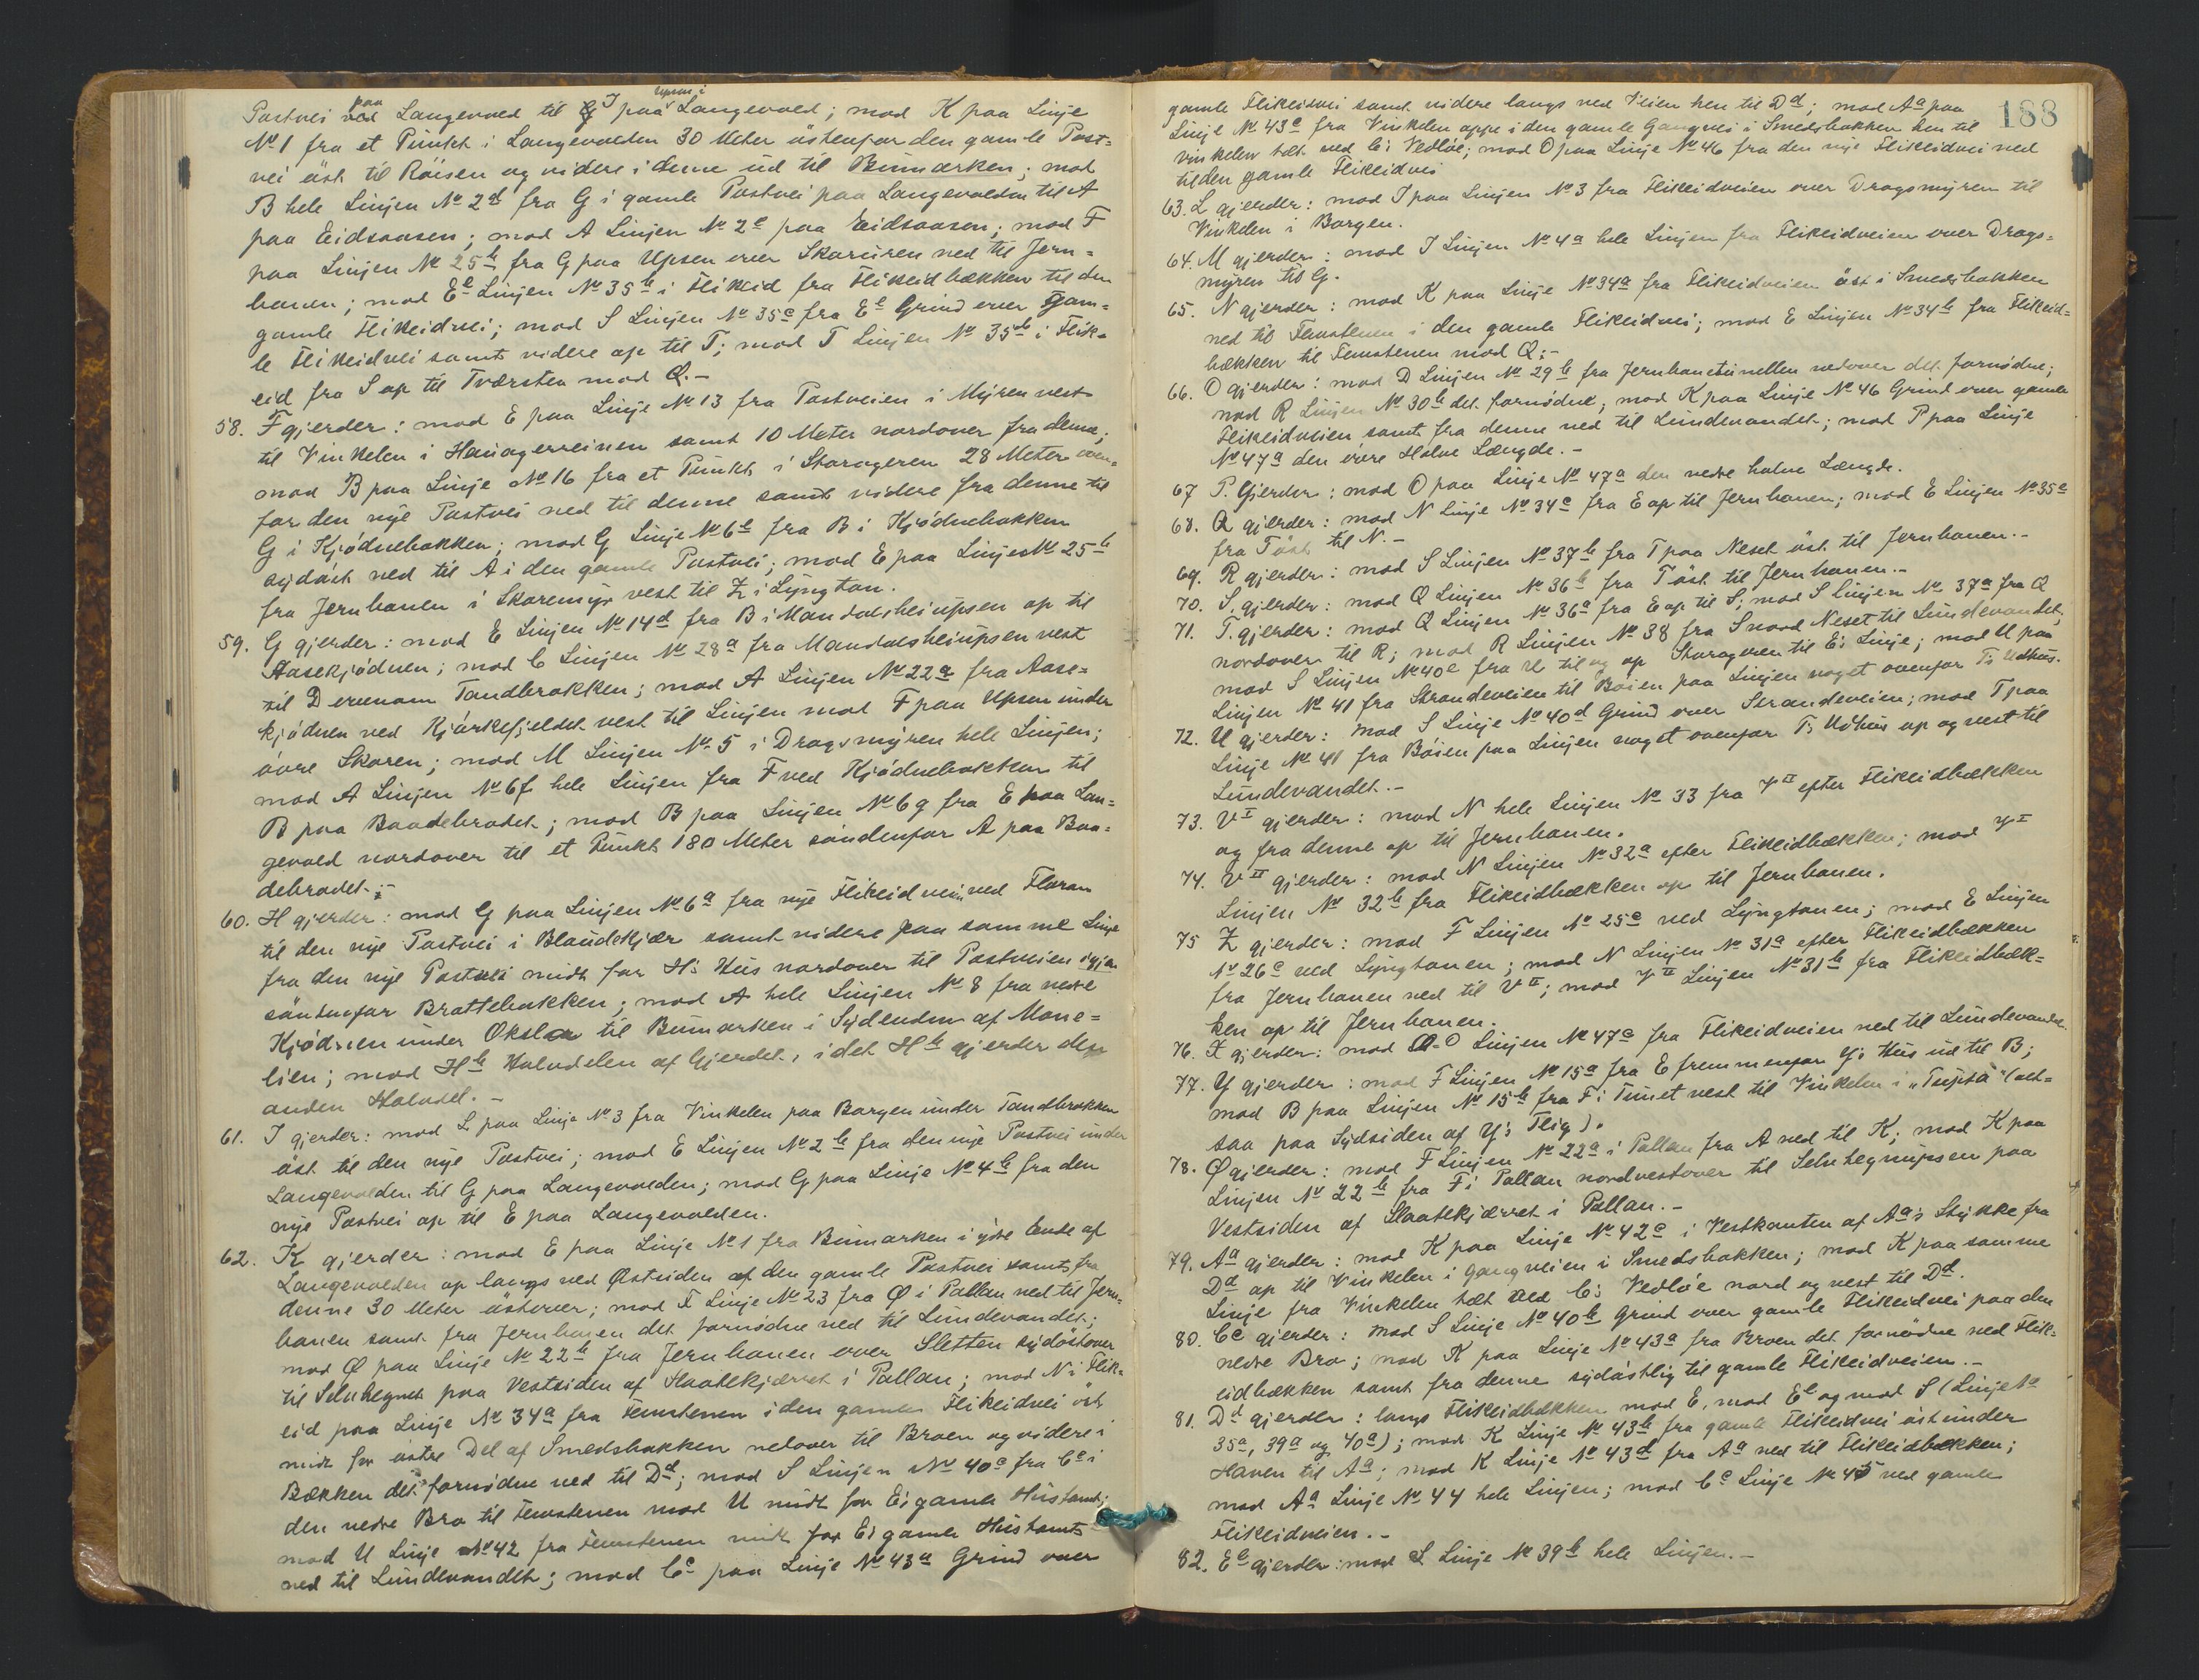 Postvei paa Langevold til I paa Upsen i Langevold; mod K paa Linje
No 1 fra et Punkt i Langevolden 30 Meter östenfor den gamle Post-
vei öst til Röisen og videre i denne ud til Bumarken; mod
B hele Linjen No 2d fra G i gamle Postvei paa Langevolden til A
paa Eidsaasen; mod A Linjen No 2e paa Eidsaasen; mod F
paa Linjen No 25b fra G paa Upsen over Skoruren ned til Jern-
banen; mod Ee Linjen No 35b i Flikeid fra Flikeidbækken til den
gamle Flikeidvei; mod S Linjen No 35c fra Ee Grind over gam-
le Flikeidvei samt videre op til T; mod T Linjen No 35d i Flik-
eid fra S op til Tværsten mod Q.-
58. F gjerder: mod E paa Linje No 13 fra Postveien i Myren vest
til Vinkelen i Hauagerreinen samt 10 Meter nordover fra denne;
mod B paa Linje No 16 fra et Punkt i Storageren 28 Meter oven-
for den nye Postvei ned til denne samt videre fra denne til
G i Kjödnebakken; mod G Linje No 6e fra B i Kjödnebakken
sydöst ned til A i den gamle Postvei; mod E paa Linjen No 25b
fra Jernbanen i Skoremyr vest til Z i Lyngtan.
59. G gjerder: mod E Linjen No 14d fra B i Mandalsheiupsen op til
Aasekjödnen; mod C Linjen No 28a fra Mandalsheiupsen vest
til D ovenom Tandbrokken; mod A Linjen No 22a fra Aase-
kjödnen ved Kjörkefjeldet vest til Linjen mod F paa Upsen under
övre Skoren; mod M Linjen No 5 i Dragsmyren hele Linjen;
mod A Linjen No 6f hele Linjen fra F ved Kjödnebakken til
B paa Baadebrodet; mod B paa Linjen No 6g fra E paa Lan-
gevold nordover til et Punkt 180 Meter söndenfor A paa Baa-
debrodet.-
60. H gjerder: mod G paa Linjen No 6a fra nye Flikeidveien ved Floran
til den nye Postvei i Blaudekjær samt videre paa samme Linje
fra den nye Postvei midt for H's Hus nordover til Postveien igjen
söndenfor Brattebakken; mod A hele Linjen No 8 fra nedre
Kjödnen under Okslen til Bumarken i Sydenden af Mone-
lien; mod Hb Halvdelen af Gjerdet, idet Hb gjerder den
anden Halvdel.-
61. I gjerder: mod L paa Linje No 3 fra Vinkelen paa Borgen under Tandbrokken
öst til den nye Postvei; mod E Linjen No 2b fra den nye Postvei under
Langevolden til G paa Langevolden; mod G paa Linje No 4b fra den
nye Postvei op til E paa Langevolden.
62. K gjerder: mod E paa Linje No 1 fra Bumarken i ydre Ende af
Langevolden op langs ved Østsiden af den gamle Postvei samt fra
denne 30 Meter östover; mod F Linje No 23 fra Ø i Pallan ned til Jern-
banen samt fra Jernbanen det fornödne ned til Lundevandet;
mod Ø paa Linje No 22b fra Jernbanen over Sletten sydöstover
til Seluhegnet paa Vestsiden af Slaattekjærret i Pallan; mod N i Flik-
eid paa Linje No 34a fra Femstenen i den gamle Flikeidvei öst
midt for östre Del af Smedsbakken nedover til Broen og videre i
Bækken det fornödne ned til Dd; mod S Linjen No 40c fra Cc i
den nedre Bro til Femstenen mod U midt for E's gamle Hustomt;
mod U Linje No 42 fra Femstenen midt for E's gamle Hustomt
ned til Lundevandet; mod Cc paa Linje No 43a Grind over
188
gamle Flikeidvei samt videre langs ved Veien hen til Dd; mod Aa paa
Linje No 43c fra Vinkelen oppe i den gamle Gangvei i Smedsbakken hen til
vinkelen tæt ved C's Vedløe; mod O paa Linje No 46 fra den nye Flikeidvei ned
til den gamle Flikeidvei
63. L gjerder: mod I paa Linjen No 3 fra Flikeidveien over Dragsmyren til
Vinkelen i Borgen.
64. M gjerder: mod I Linjen No 4a hele Linjen fra Flikeidveien over Drags-
myren til G.
65. N gjerder: mod K paa Linje No 34a fra Flikeidveien öst i Smedsbakken
ned til Femstenen i den gamle Flikeidvei; mod E Linjen No 34b fra Flikeid-
bækken til Femstenen mod Q;-
66. O gjerder: mod D Linjen No 29b fra Jernbanetunellen nedover det fornødne;
mod R Linjen No 30b det fornødne; mod K paa Linje No 46 Grind over gamle
Flikeidveien samt fra denne ned til Lundevandet; mod P paa Linje
No 47a den övre Halve Længde.-
67 P. Gjerder: mod O paa Linje No 47a den nedre halve Længde.
68. Q gjerder: mod N Linje No 34c fra E op til Jernbanen; mod E Linjen No 35e
fra T öst til N.-
69. R gjerder: mod S Linjen No 37b fra T paa Neset öst til Jernbanen.-
70. S. gjerder: mod Q Linjen No 36b fra T öst til Jernbanen.-
71. T. gjerder: mod Q Linjen No 36a fra E op til S; mod S Linjen No 37a fra Q
nordover til R; mod R Linjen No 38 fra S nord Neset til Lundevandet;
mod S Linjen No 40e fra U til og op Storageren til E's Linje; mod U paa
Linjen No 41 fra Strandeveien til Böien paa Linjen noget ovenfor T's Udhus.
72. U gjerder: mod S Linje No 40d Grind over Strandeveien; mod T paa
Linje No 41 fra Böien paa Linjen noget ovenfor T's Udhus op og vest til
Lundevandet.-
73. VI gjerder: mod N hele Linjen No 33 fra VII efter Flikeidbækken
og fra denne op til Jernbanen.
74. VII gjerder: mod N Linjen No 32a efter Flikeidbækken; mod VI
Linjen No 32b fra Flikeidbækken op til Jernbanen.
75 Z gjerder: mod F Linjen No 25c ved Lyngtonen; mod E Linjen
No 26c ved Lyngtonen; mod N Linjen No 31a efter Flikeidbækken
fra Jernbanen ned til VII; mod VII Linjen No 31b fra Flikeidbæk-
ken op til Jernbanen.
76. X gjerder: mod O Linjen No 47c fra Flikeidveien ned til Lundevandet.
77. Y gjerder: mod F Linjen No 15a fra E fremmenfor Y's Hus ud til B;
mod B paa Linjen No 15b fra F i Tunet vest til Vinkelen i "Tuptå" (alt-
saa paa Sydsiden af Y's Teig).
78. Ø gjerder: mod F Linjen No 22a i Pallan fra A ned til K; mod K paa
Linjen No 22b fra F i Pallan nordvestover til Seluhegnupsen paa
Vestsiden af Slaattekjærret i Pallan.-
79. Aa gjerder: mod K paa Linje No 42c i Vestkanten af Aa's Stykke fra
Dd op til Vinkelen i gangveien i Smedsbakken; mod K paa samme
Linje fra Vinkelen tæt ved C's Vedløe nord og vest til Dd.
80. Cc gjerder: mod S Linje No 40b Grind over gamle Flikeidvei paa den
nedre Bro; mod K paa Linje No 43a fra Broen det fornödne ned Flik-
eidbækken samt fra denne sydöstlig til gamle Flikeidveien.-
81. Dd gjerder: langs Flikeidbækken mod E, mod Ee og mod S (Linje No
35a, 39a og 40a); mod K Linje No 43b fra gamle Flikeidvei öst under
Haven til Aa; mod K Linje No 43d fra Aa ned til Flikeidbækken;
mod Aa Linje No 44 hele Linjen; mod Cc Linje No 45 ved gamle
Flikeidveien.-
82. Ee gjerder: mod S Linje No 39b hele Linjen.-